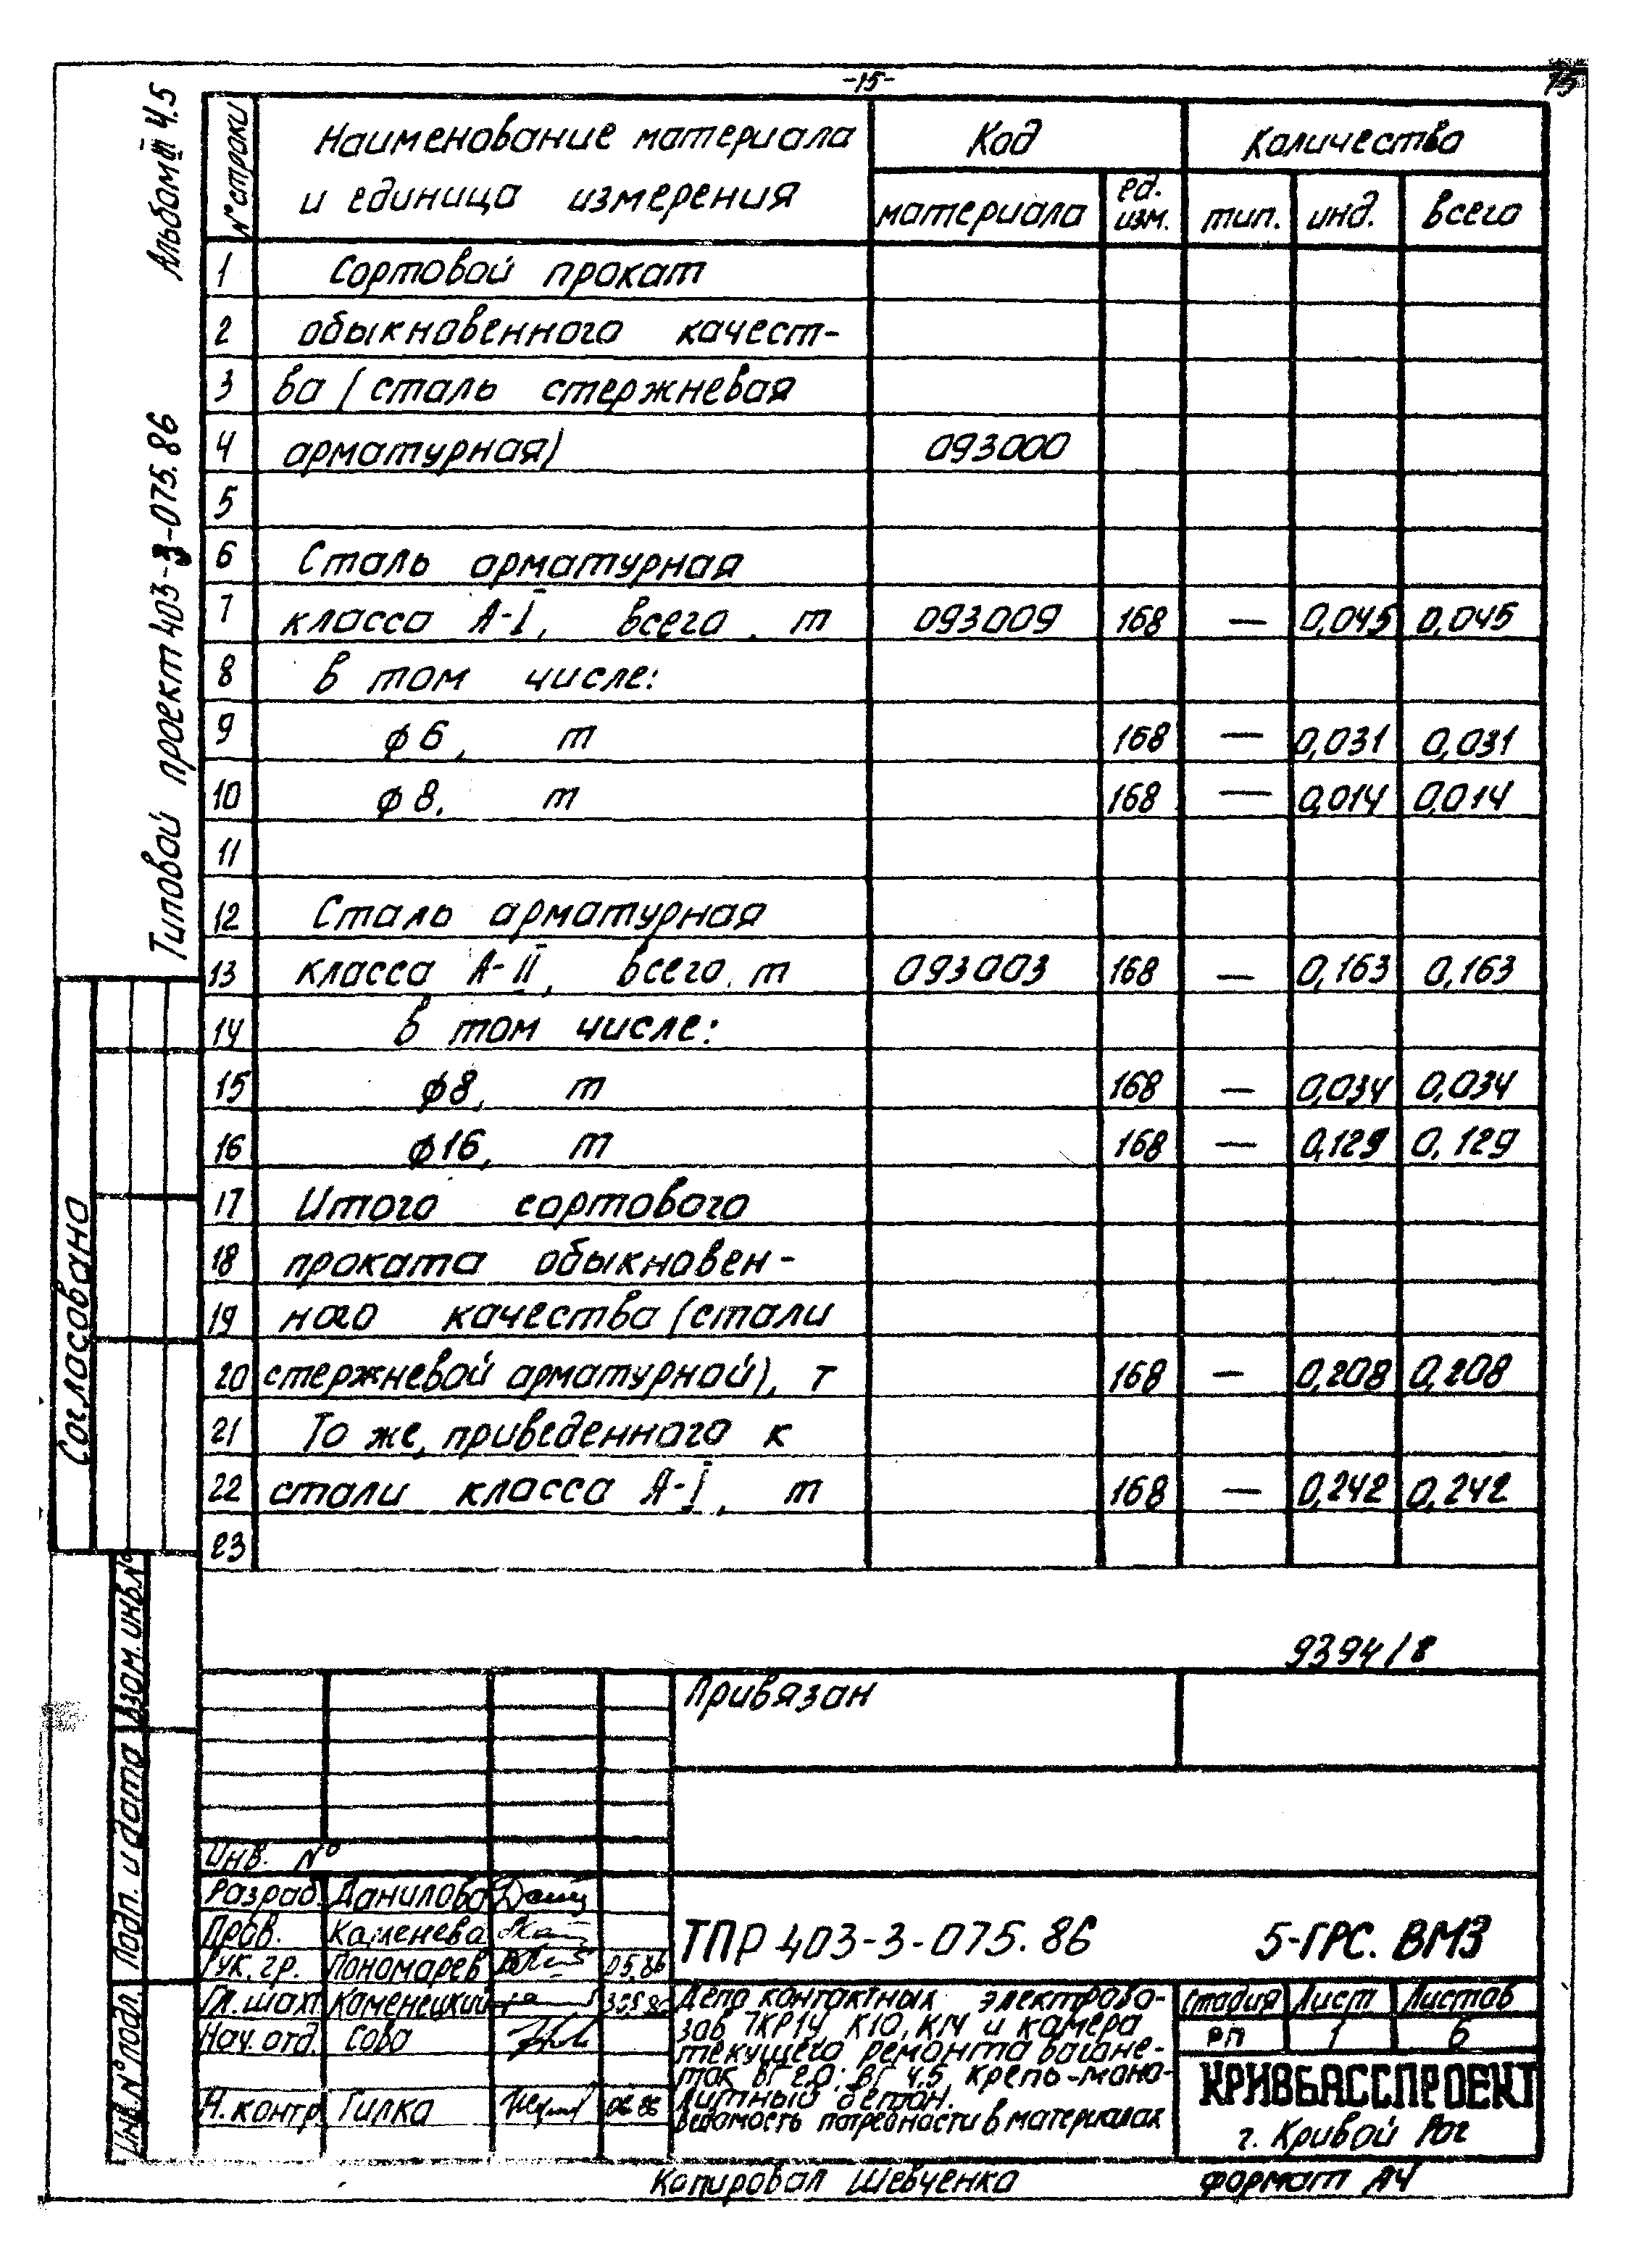 -15-
15
Альбом III 4.5
Типовой проект 403-3-075.86
№ строки
Наименование материала
и единица измерения
Код
Количество
материала
ед.
изм.
тип.
инд.
всего
1 Сортовой прокат
2 обыкновенного качест-
3 ва (сталь стержневая
4 арматурная) 093000
5
6 Сталь арматурная
7 класса А-I, всего, т 093009 168 — 0,045 0,045
8 в том числе:
9 ϕ6, т 168 — 0,031 0,031
10 ϕ8, т 168 — 0,014 0,014
11
12 Сталь арматурная
13 класса А-II, всего, т 093003 168 — 0,163 0,163
14 в том числе:
15 ϕ8, т 168 — 0,034 0,034
16 ϕ16, т 168 — 0,129 0,129
17 Итого сортового
18 проката обыкновен-
19 ного качества (стали
20 стержневой арматурной), т 168 — 0,208 0,208
21 То же, приведенного к
22 стали класса А-I, т 168 — 0,242 0,242
23
Согласовано
Взам. инв. №
Подп. и дата
Инв. № подл.
9394/8
Привязан
Инв. №
Разраб. Данилова
Пров. Каменева
Рук. гр. Пономарев 05.86
Гл. шахт. Каменецкий
Нач. отд. Сова
Н. контр. Гилка 06 86
ТПР 403-3-075.86 5-ГРС. ВМ3
Депо контактных электрово-
зов 7КР1У, К10, К14 и камера
текущего ремонта вагоне-
ток ВГ 2.0; ВГ 4.5, крепь-моно-
литный бетон.
Ведомость потребности в материалах
Стадия Лист Листов
РП 1 6
КРИВБАССПРОЕКТ
г. Кривой Рог
Копировал Шевченко
Формат А4